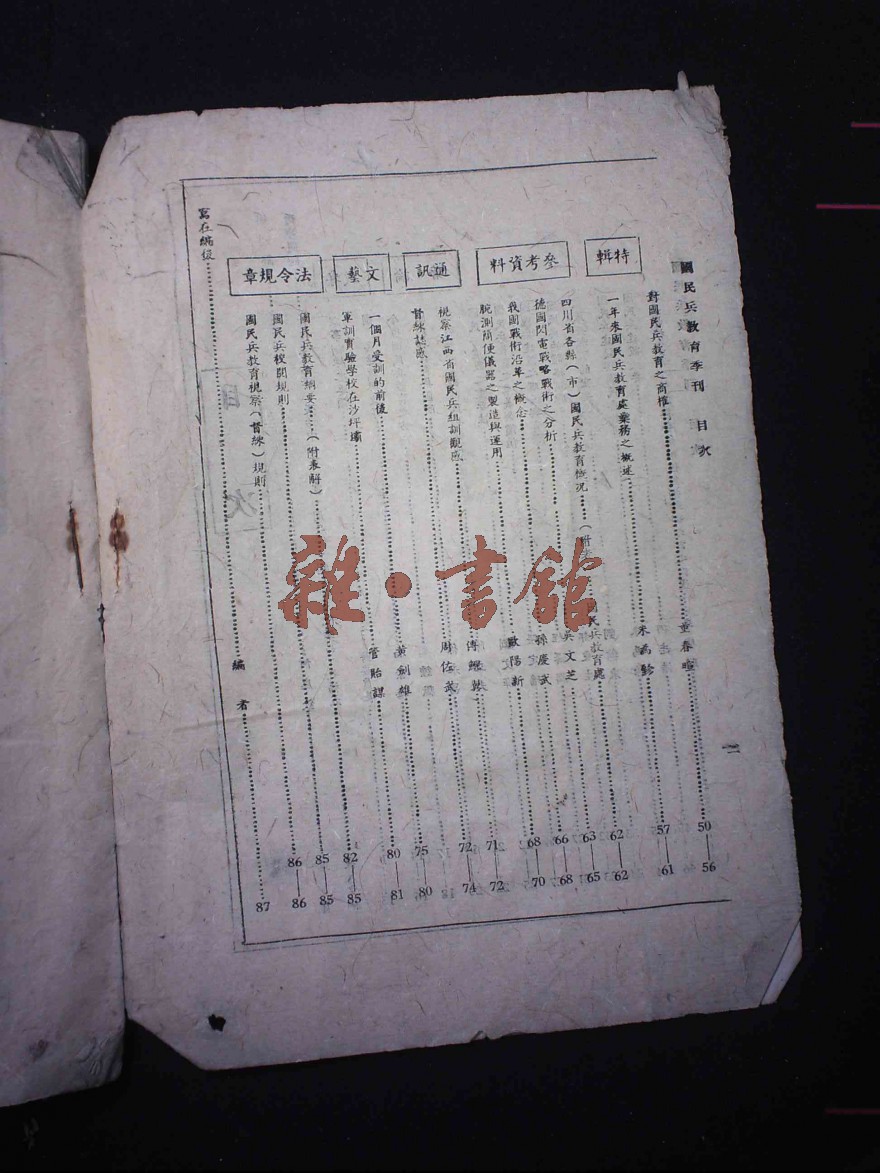 國民兵教育季刊 目次
二
對國民兵教育之商榷 童春暄 50—56
特輯
一年來國民兵教育處業務之概述 57—61
四川省各縣（市）國民兵教育概況 （附 民兵教育處 62—62
參考資料
德國閃電戰略戰術之分析 吳文芝 63—65
我國戰術沿革之概念 孫慶武 66—68
腕測簡便儀器之製造與運用 歐陽新 68—70
通訊
視察江西省國民兵組訓觀感 傅 71—72
督練誌感 周佐武 72—74
文藝
一個月受訓的前後 黄劍雄 75—80
軍訓實驗學校在沙坪壩 管貽謀 80—81
法令規章
國民兵教育綱要（附表解） 82—85
國民兵校閱規則 85—85
國民兵教育視察（督練）規則 86—86
寫在編後 編者 87
雜·書館